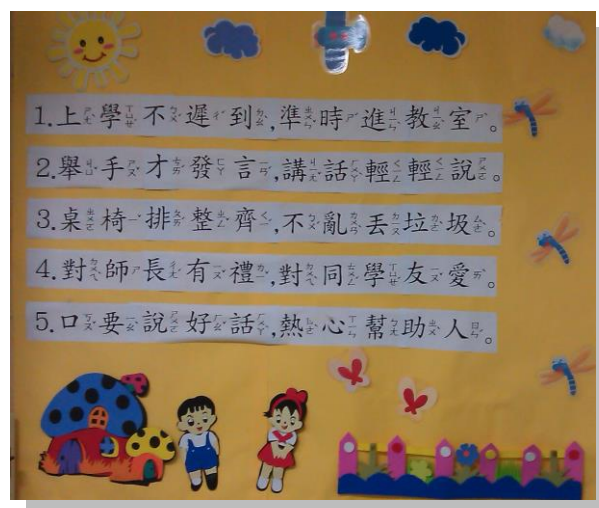 1.上學不遲到,準時進教室。
2.舉手才發言,講話輕輕說。
3.桌椅排整齊,不亂丟垃圾。
4.對師長有禮,對同學友愛。
5.口要說好話,熱心幫助人。